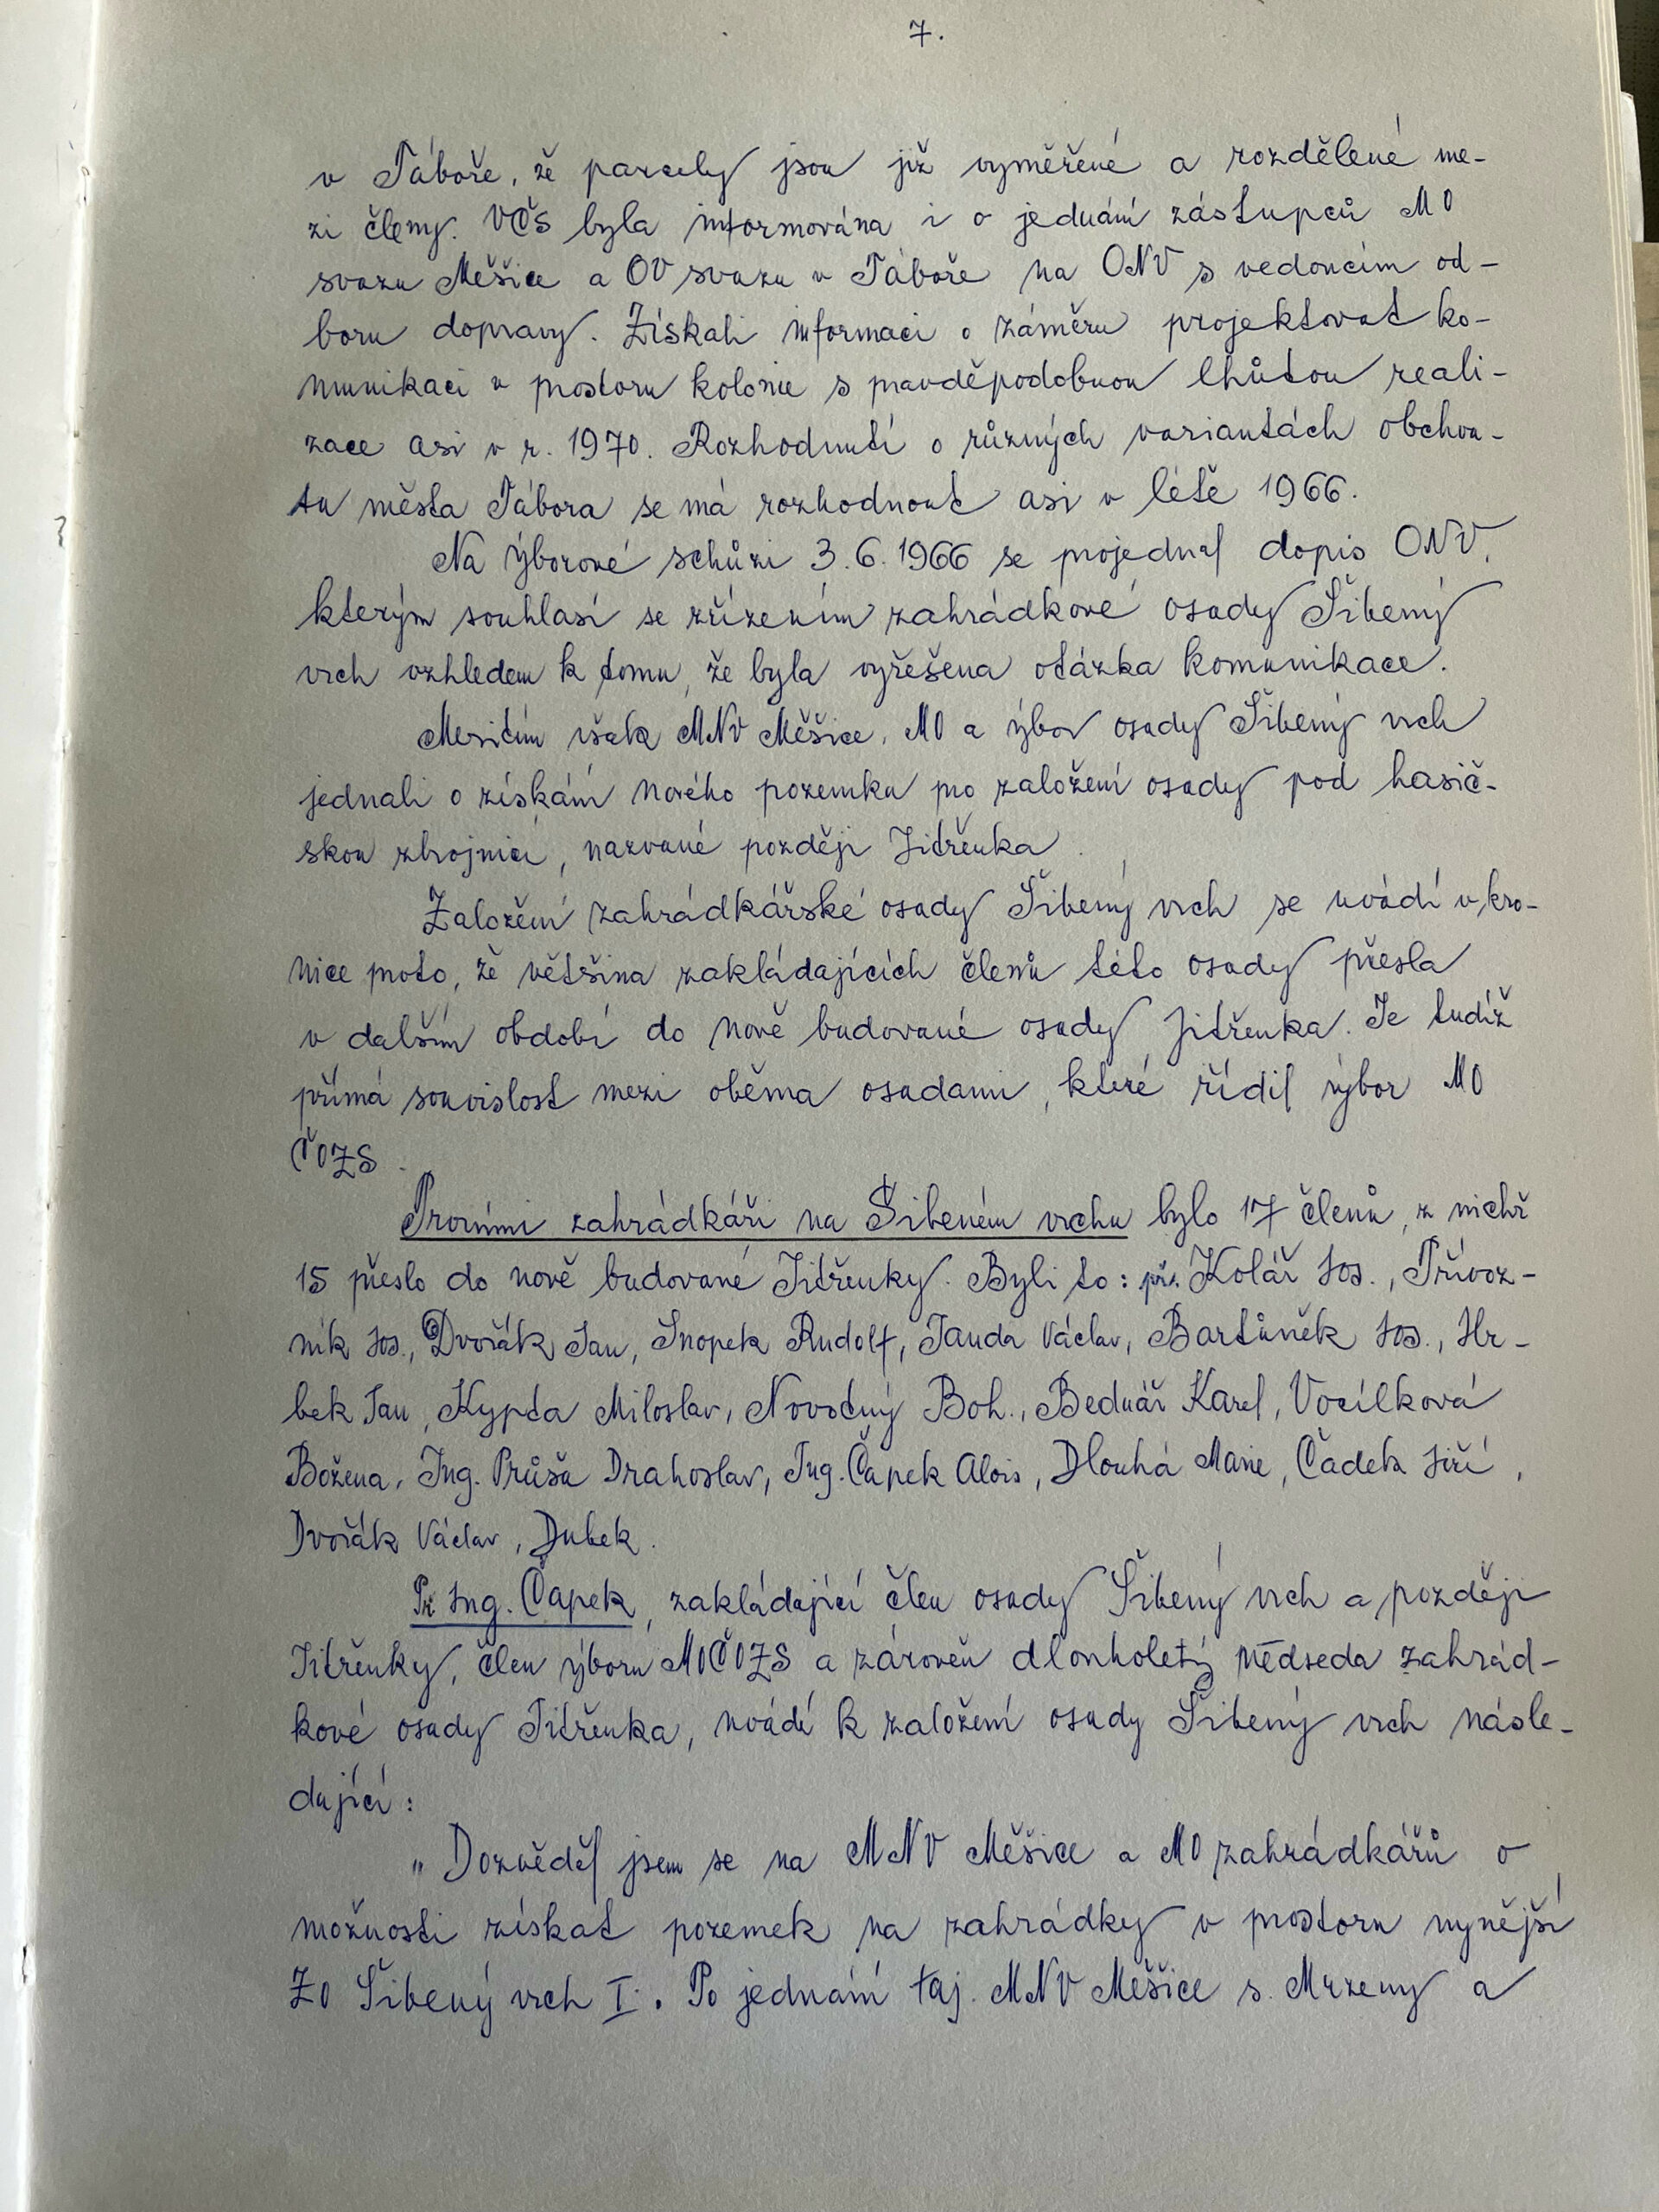 7.
v Táboře, že parcely jsou již vyměřené a rozdělené me-
zi členy. VČS byla informována i o jednání zástupců MO
svazu Měšice a OV svazu v Táboře na ONV s vedoucím od-
boru dopravy. Získali informaci o záměru projektovat ko-
munikaci v prostoru kolonie s pravděpodobnou lhůtou reali-
zace asi v r. 1970. Rozhodnutí o různých variantách obchva-
tu města Tábora se má rozhodnout asi v létě 1966.
Na výborové schůzi 3.6.1966 se projednal dopis ONV,
kterým souhlasí se zřízením zahrádkové osady Šibený
vrch vzhledem k tomu, že byla vyřešena otázka komunikace.
Mezitím však MNV Měšice, MO a výbor osady Šibený vrch
jednali o získání nového pozemku pro založení osady pod hasič-
skou zbrojnicí, nazvané později Jitřenka.
Založení zahrádkářské osady Šibený vrch se uvádí v kro-
nice proto, že většina zakládajících členů této osady přešla
v dalším období do nově budované osady Jitřenka. Je tudíž
přímá souvislost mezi oběma osadami, které řídil výbor MO
ČOZS.
Prvními zahrádkáři na Šibeném vrchu bylo 17 členů, z nichž
15 přešlo do nově budované Jitřenky. Byli to: př. Kolář Jos., Přívoz-
ník Jos., Dvořák Jan, Snopek Rudolf, Janda Václav, Bartůněk Jos., Hr-
bek Jan, Kypta Miloslav, Novotný Boh., Bednář Karel, Vocílková
Božena, Ing. Průša Drahoslav, Ing. Čapek Alois, Dlouhá Marie, Čadek Jiří,
Dvořák Václav, Dubek.
Př. Ing. Čapek, zakládající člen osady Šibený vrch a později
Jitřenky, člen výboru MOČOZS a zároveň dlouholetý předseda zahrád-
kové osady Jitřenka, uvádí k založení osady Šibený vrch násle-
dující:
„Dozvěděl jsem se na MNV Měšice a MO zahrádkářů o
možnosti získat pozemek na zahrádky v prostoru nynější
ZO Šibený vrch I. Po jednání taj. MNV Měšice s. Mrzeny a